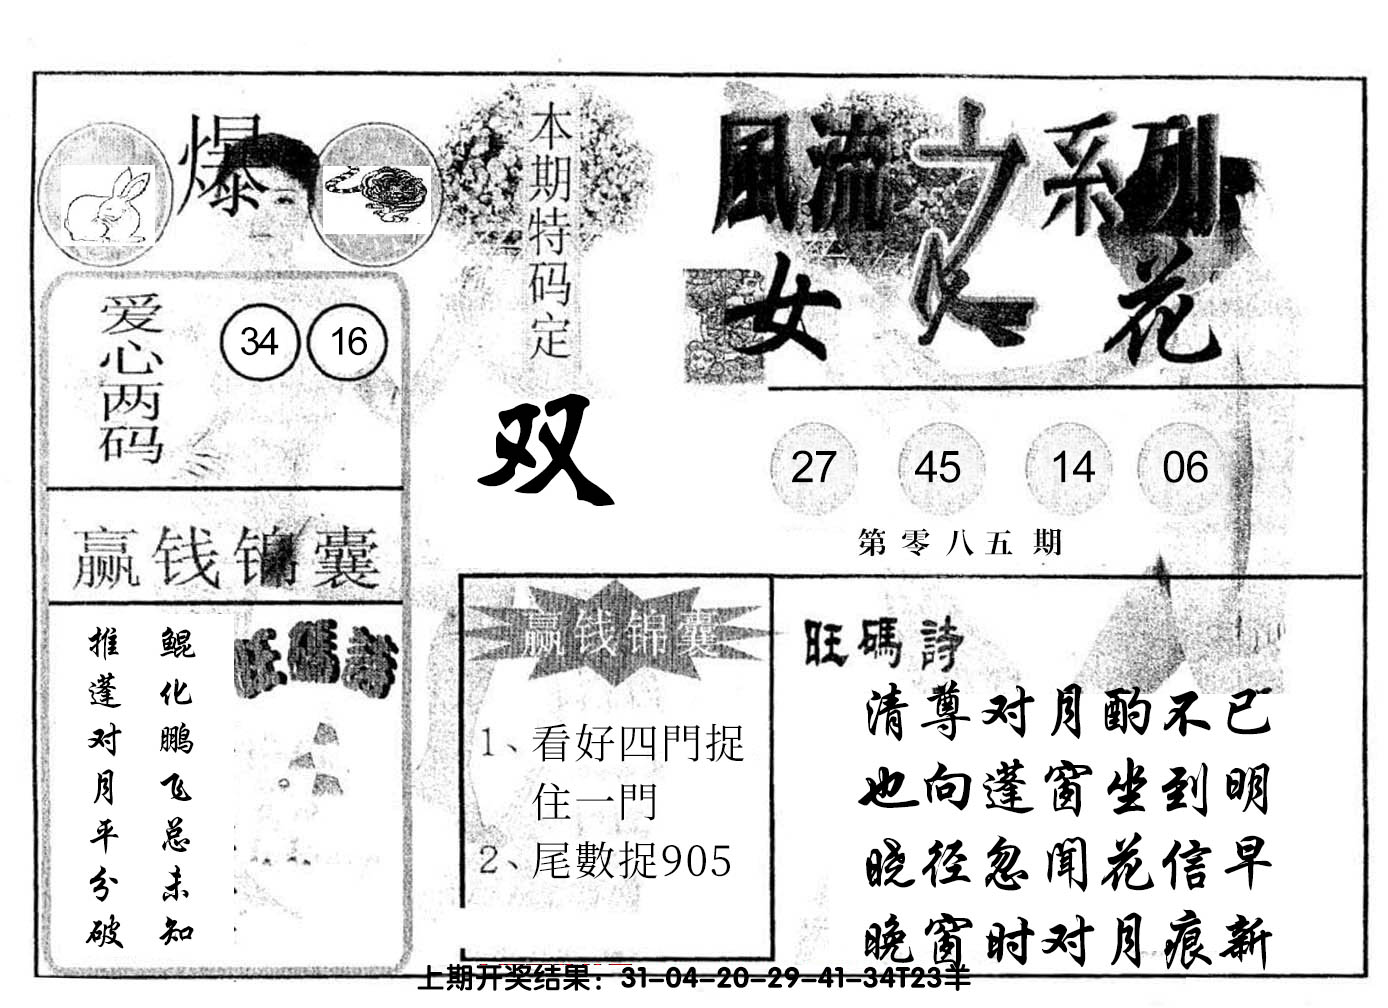 爆
本期特码定
双
風流之系列
女人花
爱心两码
34 16
27 45 14 06
第零八五期
赢钱锦囊
鲲化鹏飞总未知
推蓬对月平分破
旺碼詩
赢钱锦囊
1、看好四門捉
住一門
2、尾數捉905
旺碼詩
清尊对月酌不已
也向蓬窗坐到明
晓径忽闻花信早
晚窗时对月痕新
上期开奖结果：31-04-20-29-41-34T23羊